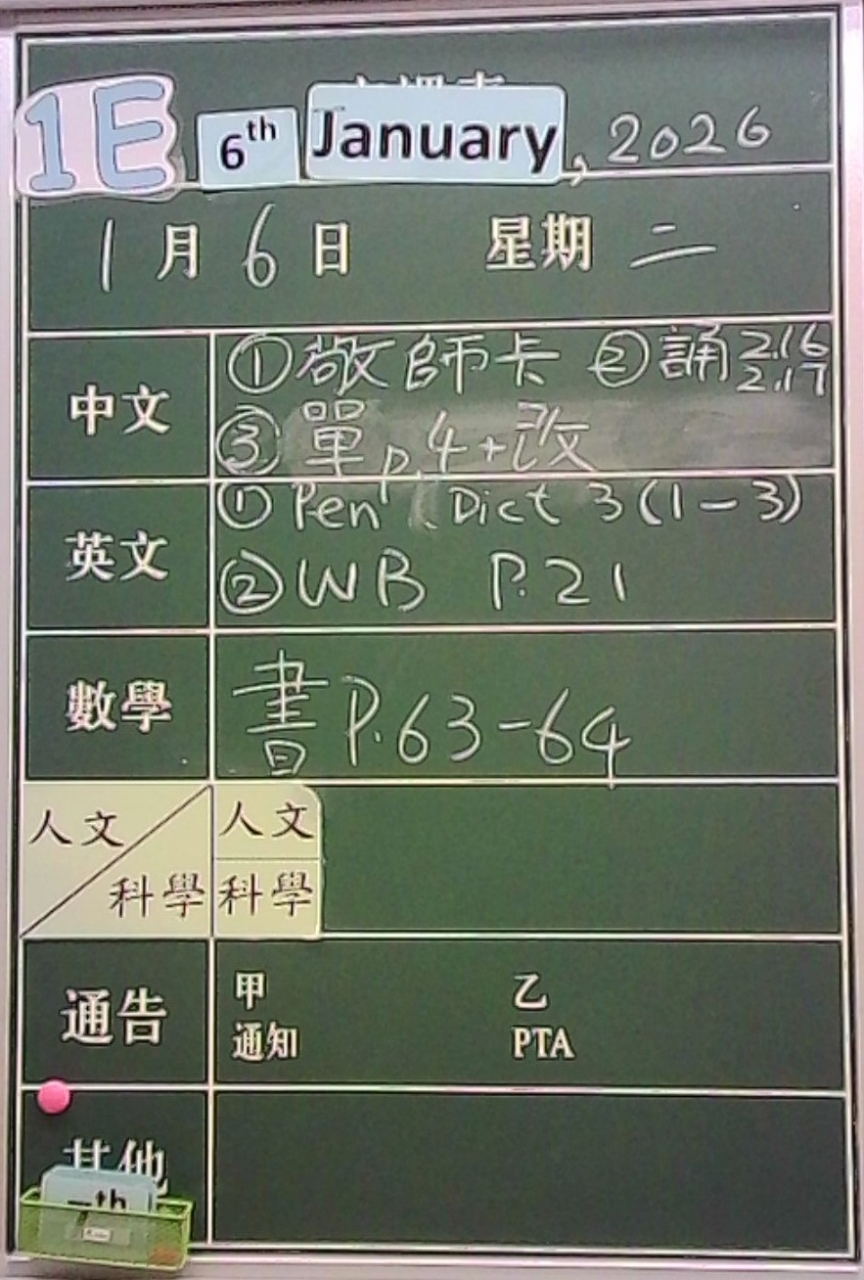 1E 6th January, 2026
1月6日 星期二
中文 ①敬師卡 ②誦 2.16 2.17
③單 p.4+改
英文 ① Pen Dict 3 (1-3)
② WB P.21
數學 書 P.63-64
人文 人文
科學 科學
通告 甲 乙
通知 PTA
其他
th